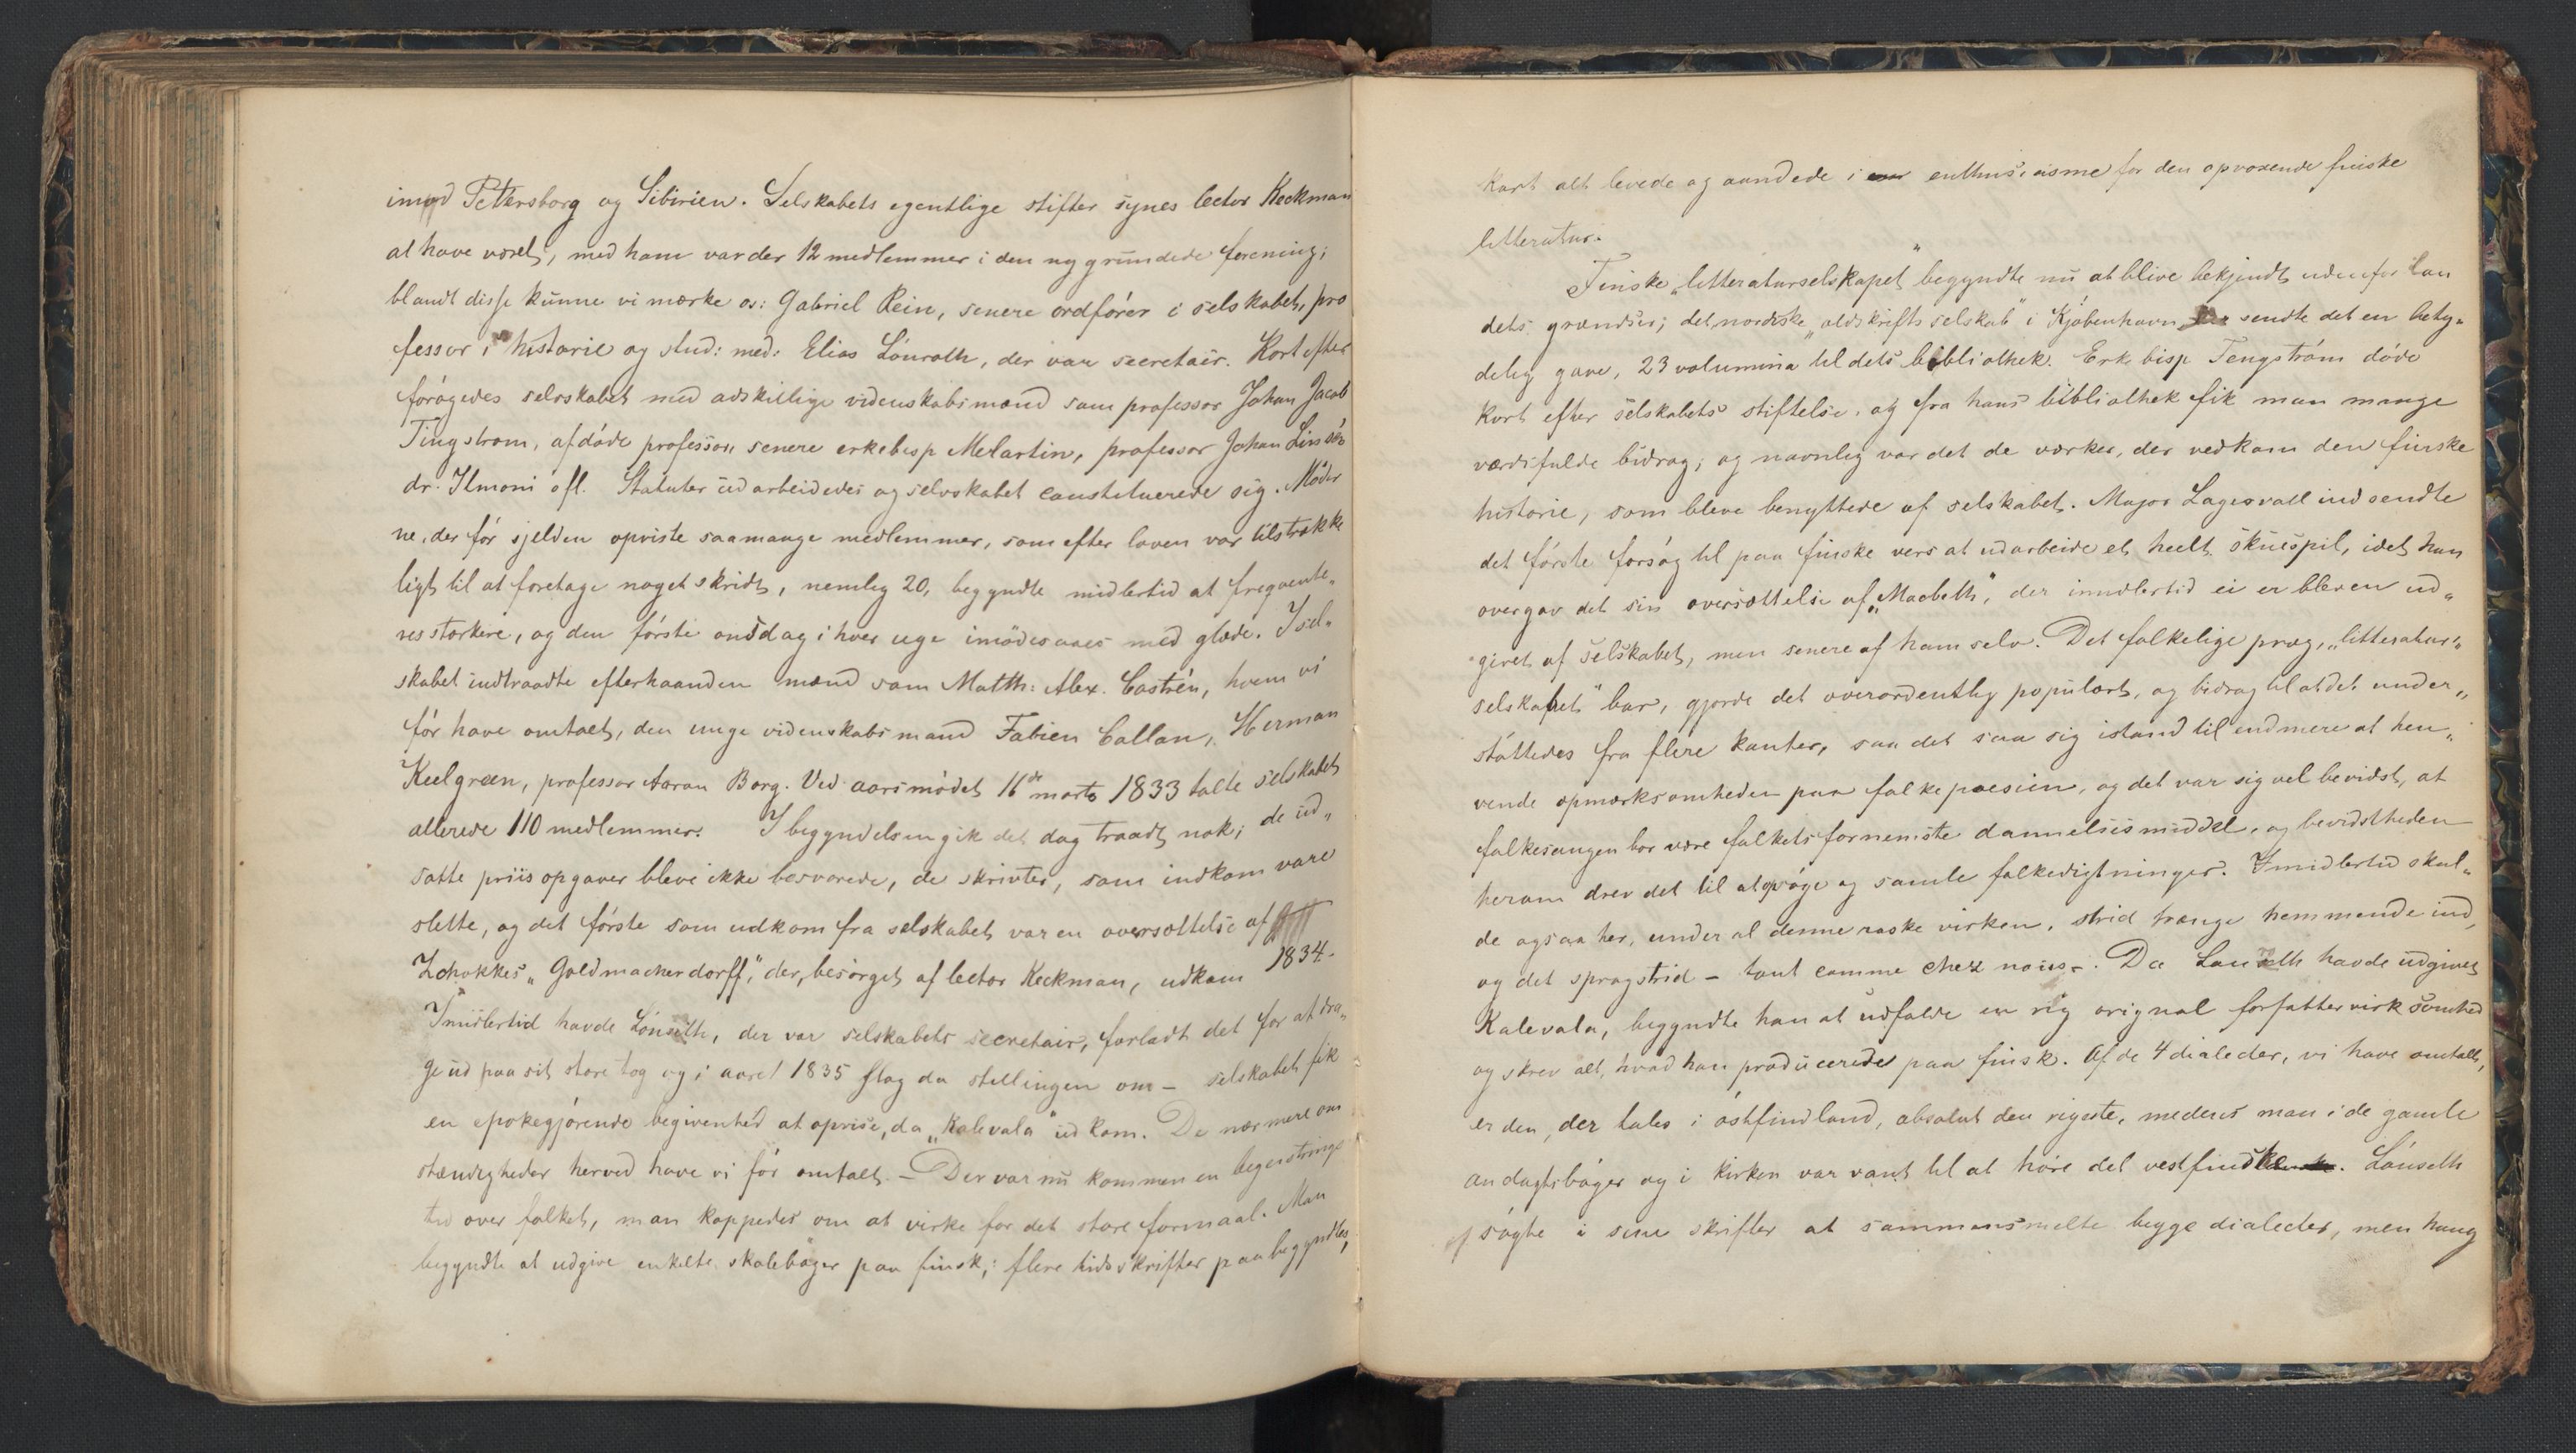 imod Petersborg og Sibirien. Selskabets egentlige stifter synes lector Keckman
at have været, med ham var der 12 medlemmer i den ny grundede forening;
blandt disse kunne vi mærke os: Gabriel Rein, senere ordfører i selskabet, pro
fessor i historie og stud: med: Elias Lönroth, der var secretair. Kort efter
forøgedes selvskabet med adskillige videnskabsmænd som professor Johan Jacob
Tingstrom, afdøde professor, senere erkebisp Melartin, professor Johan Linsén
dr. Ilmoni ofl. Statuter udarbeidedes og selvskabet constituerede sig. Møder
ne, der før sjelden opviste saamange medlemmer, som efter loven var tilstrække
ligt til at foretage noget skridt, nemlig 20, begyndte midlertid at frequente„
res stærkere, og den første onsdag i hver uge imødesaaes med glæde. I sel„
skabet indtraadte efterhaanden mænd som Matth: Alex. Castrén, hvem vi
før have omtalt, den unge videnskabsmand Fabien Collan, Herman
Keelgreen, professor Aaron Borg. Ved aarsmødet 16de marts 1833 talte selskabet
allerede 110 medlemmer. I begyndelsen gik det dog traadt nok; de ud„
satte priisopgaver bleve ikke besvarede, de skrivter, som indkom vare
slette, og det første som udkom fra selskabet var en oversættelse af
Zchokkes „Goldmacherdorff," der, besørget af lector Keckman, udkom 1834.
Imidlertid havde Lönroth, der var selskabets secretair, forladt det for at dra„
ge ud paa sit store tog og i aaret 1835 slog da stillingen om – selskabet fik
en epokegjørende begivenhed at opvise, da „Kalevala" udkom. De nærmere om
stændigheder herved have vi før omtalt. – Der var nu kommen en begeistrings
tid over folket, man kappedes om at virke for det store formaal. Man
begyndte at udgive enkelte skolebøger paa finsk; flere tidsskrifter paabegyndtes,
kort alt levede og aandede i enthusiasme for den opvoxende finske
litteratur.
Finske „litteraturselskapet" begyndte nu at blive bekjendt udenfor lan
dets grændser; det nordiske „oldskriftsselskab" i Kjøbenhavn sendte det en bety„
delig gave, 23 volumina til dets bibliothek. Erkebisp Tengström døde
kort efter selskabets stiftelse, og fra hans bibliothek fik man mange
værdifulde bidrag; og navnlig var det de værker, der vedkom den finske
historie, som bleve benyttede af selskabet. Major Lagervall indsendte
det første forsøg til paa finske vers at udarbeide et heelt skuespil, idet han
overgav det sin oversættelse af „Macbeth", der imidlertid ei er bleven ud„
givet af selskabet, men senere af ham selv. Det folkelige præg, „litteratur„
selskabet" bar, gjorde det overordentlig populært, og bidrog til at det under„
støttedes fra flere kanter, saa det saa sig istand til endmere at hen„
vende opmærksomheden paa folkepoesien, og det var sig vel bevidst, at
folkesangen bør være folkets fornemste dannelsesmiddel, og bevidstheden
herom drev det til at søge og samle folkedigtninger. Imidlertid skul„
de ogsaa her, under al denne raske virken, strid trænge hemmende ind,
og det sprogstrid – tout comme chez nous –. Da Lönroth havde udgivet
Kalevala, begyndte han at udfolde en rig orignal forfattervirksomhed
og skrev alt, hvad han producerede paa finsk. Af de 4 dialecter, vi have omtalt,
er den, der tales i østfindland, absolut den rigeste, medens man i de gamle
andagtsbøger og i kirken var vant til at høre det vestfindske. Lönroth
søgte i sine skrifter at sammensmelte begge dialecter, men hang